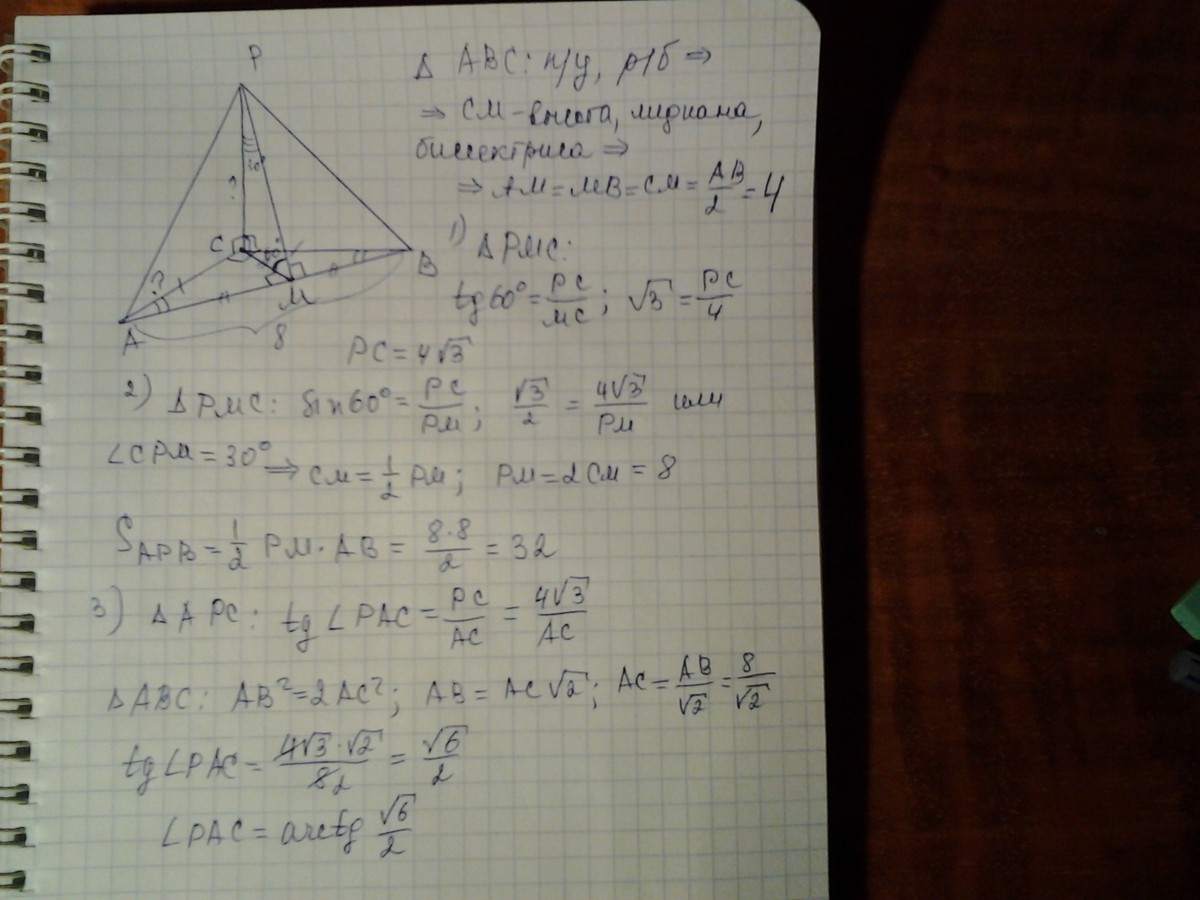 P
Δ ABC: п/у, р/б ⇒
⇒ CM - высота, медиана,
биссектриса ⇒
⇒ AM = MB = CM = AB/2 = 4
?
30°
C
60°
B
?
M
A
8
1) Δ PMC:
tg 60° = PC/MC; √3 = PC/4
PC = 4√3
2) Δ PMC: sin 60° = PC/PM; √3/2 = 4√3/PM или
∠CPM = 30° ⇒ CM = 1/2 PM; PM = 2CM = 8
S APB = 1/2 PM · AB = 8·8/2 = 32
3) Δ APC: tg ∠PAC = PC/AC = 4√3/AC
Δ ABC: AB² = 2AC²; AB = AC√2; AC = AB/√2 = 8/√2
tg ∠PAC = 4√3·√2/8 2 = √6/2
∠PAC = arctg √6/2